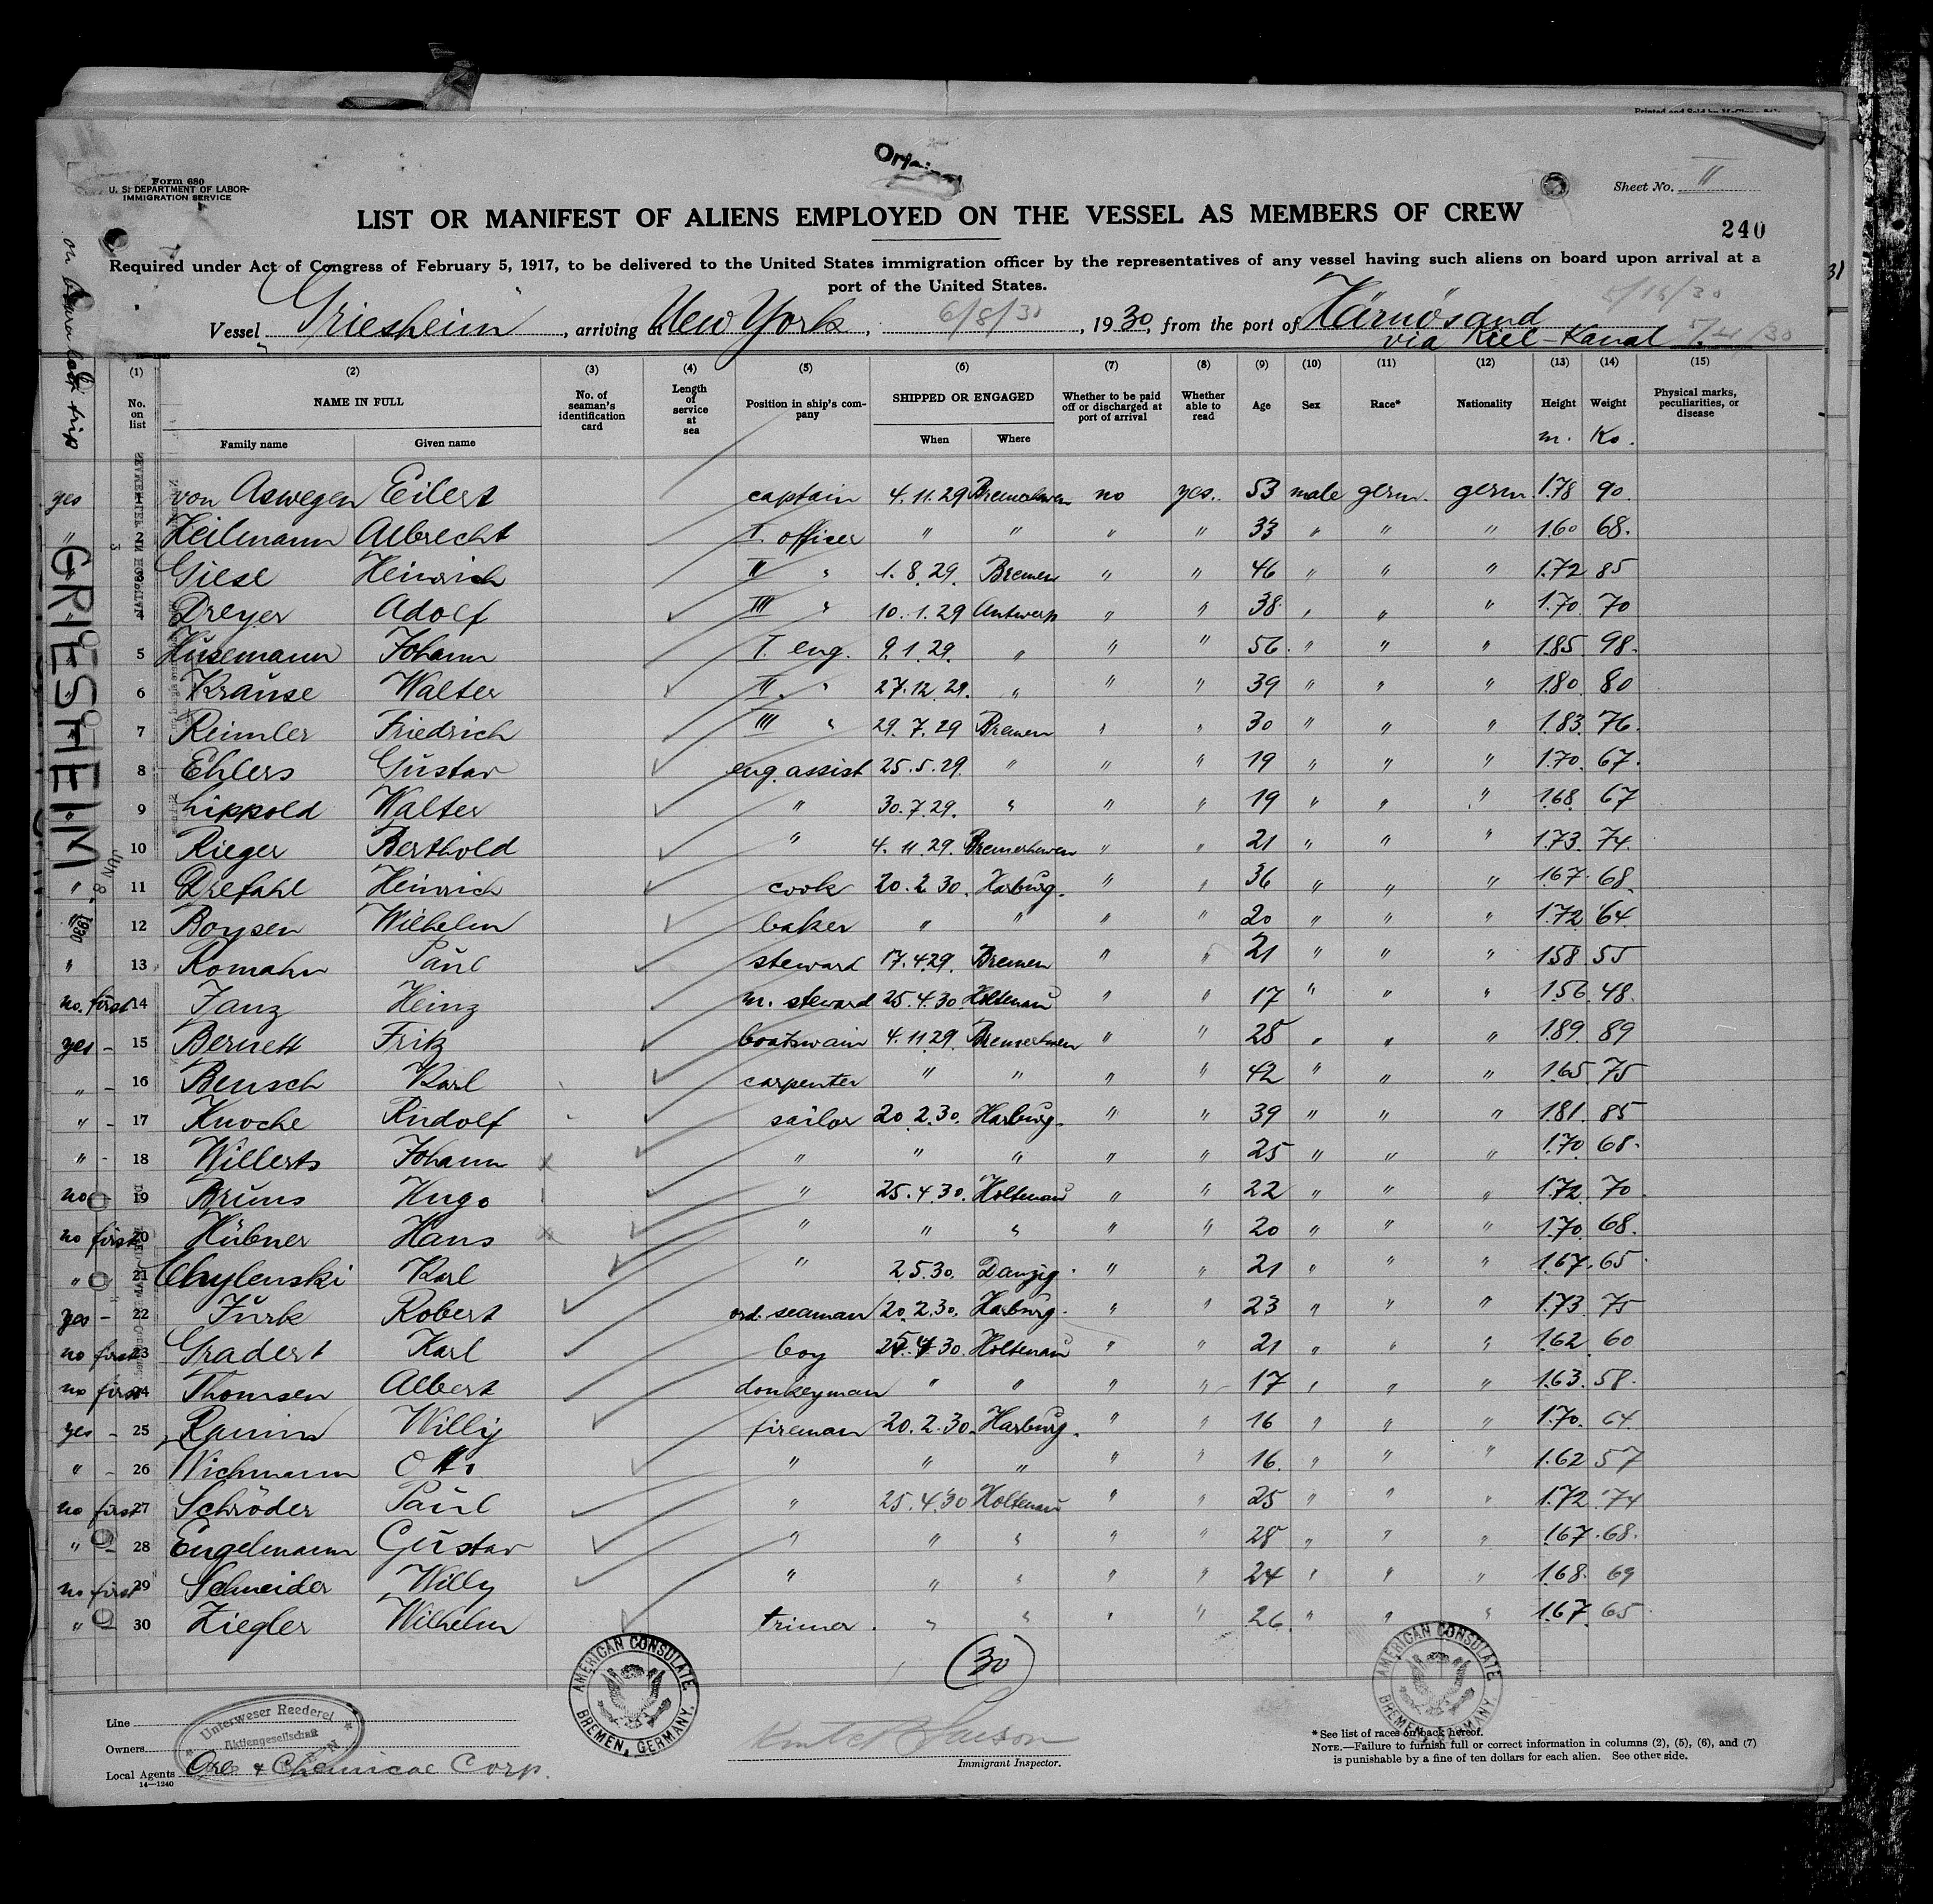 Original
Form 680
U. S. DEPARTMENT OF LABOR
IMMIGRATION SERVICE
Sheet No. II
LIST OR MANIFEST OF ALIENS EMPLOYED ON THE VESSEL AS MEMBERS OF CREW
240
Required under Act of Congress of February 5, 1917, to be delivered to the United States immigration officer by the representatives of any vessel having such aliens on board upon arrival at a
port of the United States.
5/15/30
Vessel Griesheim, arriving at New York, 6/8/30, 1930, from the port of Härnösand
via Kiel-Kanal 5/4/30
(1) (2) (3) (4) (5) (6) (7) (8) (9) (10) (11) (12) (13) (14) (15)
No. on list NAME IN FULL No. of seaman's identification card Length of service at sea Position in ship's company SHIPPED OR ENGAGED Whether to be paid off or discharged at port of arrival Whether able to read Age Sex Race* Nationality Height Weight Physical marks, peculiarities, or disease
Family name Given name When Where m. Ko.
yes von Aswegen Eilert captain 4.11.29 Bremerhaven no yes. 53 male germ. germ 1.78 90
" 2 Heilmann Albrecht I. officer " " " " 33 " " " 1.60 68.
Giese Heinrich II " 1.8.29. Bremen " " 46 " " " 1.72 85
4 Dreyer Adolf III " 10.1.29 Antwerp " " 38 " " " 1.70 70
5 Hüsemann Johann I. eng. 9.1.29. " " " 56. " " " 1.85 98.
6 Krause Walter II. " 27.12.29. " " " 39 " " " 1.80 80
7 Reimler Friedrich III " 29.7.29 Bremen " " 30 " " " 1.83 76.
8 Ehlers Gustav eng. assist 25.5.29. " " " 19 " " " 1.70 67.
9 Lippold Walter " 30.7.29. " " " 19 " " " 1.68 67
10 Rieger Berthold " 4.11.29. Bremerhaven " " 21 " " " 1.73 74.
" 11 Drefahl Heinrich cook 20.2.30. Harburg. " " 36 " " " 1.67 68.
12 Boysen Wilhelm baker " " " " 20 " " " 1.72 64.
" 13 Romahn Paul steward 17.4.29. Bremen " " 21 " " " 1.58 55
no. first 14 Janz Heinz m. steward 25.4.30 Holtenau " " 17 " " " 1.56 48.
yes - 15 Bernett Fritz boatswain 4.11.29. Bremerhaven " " 28 " " " 1.89 89
" - 16 Beusch Karl carpenter " " " " 42 " " " 1.65 75
" - 17 Knocke Rudolf sailor 20.2.30. Harburg. " " 39 " " " 1.81 85
" - 18 Willerts Johann x " " " " " 25 " " " 1.70 68.
no 19 Bruns Hugo " 25.4.30. Holtenau " " 22 " " " 1.72 70
no first 20 Hübner Hans x " " " " " 20 " " " 1.70 68.
" 21 Chylenski Karl " 2.5.30. Danzig " " 21 " " " 1.67 65
yes - 22 Furk Robert ord. seaman 20.2.30. Harburg. " " 23 " " " 1.73 75
no first 23 Gradert Karl boy 25.4.30. Holtenau " " 21 " " " 1.62 60
no first 24 Thomsen Albert donkeyman " " " " 17 " " " 1.63 58.
yes - 25 Ramm Willy fireman 20.2.30. Harburg. " " 16 " " " 1.70 64.
" - 26 Wichmann Otto " " " " " 16. " " " 1.62 57
no first 27 Schröder Paul " 25.4.30 Holtenau " " 25 " " " 1.72 74
" - 28 Engelmann Gustav " " " " " 28 " " " 1.67 68.
no first 29 Schneider Willy " " " " " 24 " " " 1.68 69
" 30 Ziegler Wilhelm trimer. " " " " 26. " " " 1.67 65
(30)
on board last trip
GRIESHEIM
JUN 8 - 1930
AMERICAN CONSULATE
BREMEN, GERMANY.
AMERICAN CONSULATE
BREMEN, GERMANY
Line
Unterweser Reederei
Aktiengesellschaft
Owners
Local Agents Ore & Chemical Corp.
14—1240
Immigrant Inspector.
* See list of races on back hereof.
NOTE.—Failure to furnish full or correct information in columns (2), (5), (6), and (7)
is punishable by a fine of ten dollars for each alien. See other side.